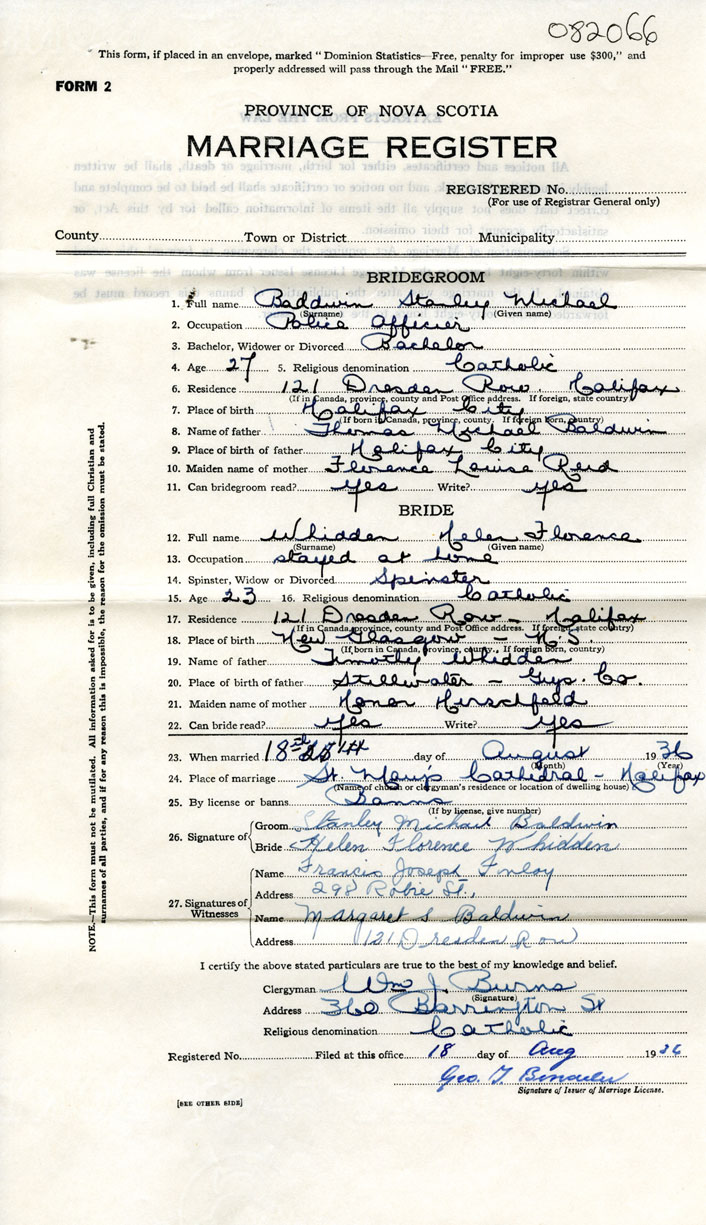 082066
This form, if placed in an envelope, marked "Dominion Statistics—Free, penalty for improper use $300," and
properly addressed will pass through the Mail "FREE."
FORM 2
PROVINCE OF NOVA SCOTIA
MARRIAGE REGISTER
REGISTERED No.
(For use of Registrar General only)
County Town or District Municipality
BRIDEGROOM
1. Full name Baldwin Stanley Michael
(Surname) (Given name)
2. Occupation Police Officer
3. Bachelor, Widower or Divorced Bachelor
4. Age 27 5. Religious denomination Catholic
6. Residence 121 Dresden Row. Halifax
(If in Canada, province, county and Post Office address. If foreign, state country)
7. Place of birth Halifax City
(If born in Canada, province, county. If foreign born, country)
8. Name of father Thomas Michael Baldwin
9. Place of birth of father Halifax City
10. Maiden name of mother Florence Louise Reid
11. Can bridegroom read? yes Write? yes
BRIDE
12. Full name Whidden Helen Florence
(Surname) (Given name)
13. Occupation stayed at home
14. Spinster, Widow or Divorced Spinster
15. Age 23 16. Religious denomination Catholic
17. Residence 121 Dresden Row - Halifax
(If in Canada, province, county and Post Office address. If foreign, state country)
18. Place of birth New Glasgow - N.S.
(If born in Canada, province, county. If foreign born, country)
19. Name of father Timothy Whidden
20. Place of birth of father Stillwater - Guys. Co.
21. Maiden name of mother Honor Hirschfeld
22. Can bride read? yes Write? yes
23. When married 18th day of August 1936
(Month) (Year)
24. Place of marriage St. Mary's Cathedral - Halifax
(Name of church or clergyman's residence or location of dwelling house)
25. By license or banns Banns
(If by license, give number)
26. Signature of
Groom Stanley Michael Baldwin
Bride Helen Florence Whidden
27. Signatures of Witnesses
Name Francis Joseph Finlay
Address 298 Robie St.,
Name Margaret S Baldwin
Address 121 Dresden Row
I certify the above stated particulars are true to the best of my knowledge and belief.
Clergyman Wm J. Burns
(Signature)
Address 360 Barrington St
Religious denomination Catholic
Registered No. Filed at this office 18 day of Aug 1936
Geo. T.
Signature of Issuer of Marriage License.
[SEE OTHER SIDE]
NOTE.—This form must not be mutilated. All information asked for is to be given, including full Christian and
surnames of all parties, and if for any reason this is impossible, the reason for the omission must be stated.